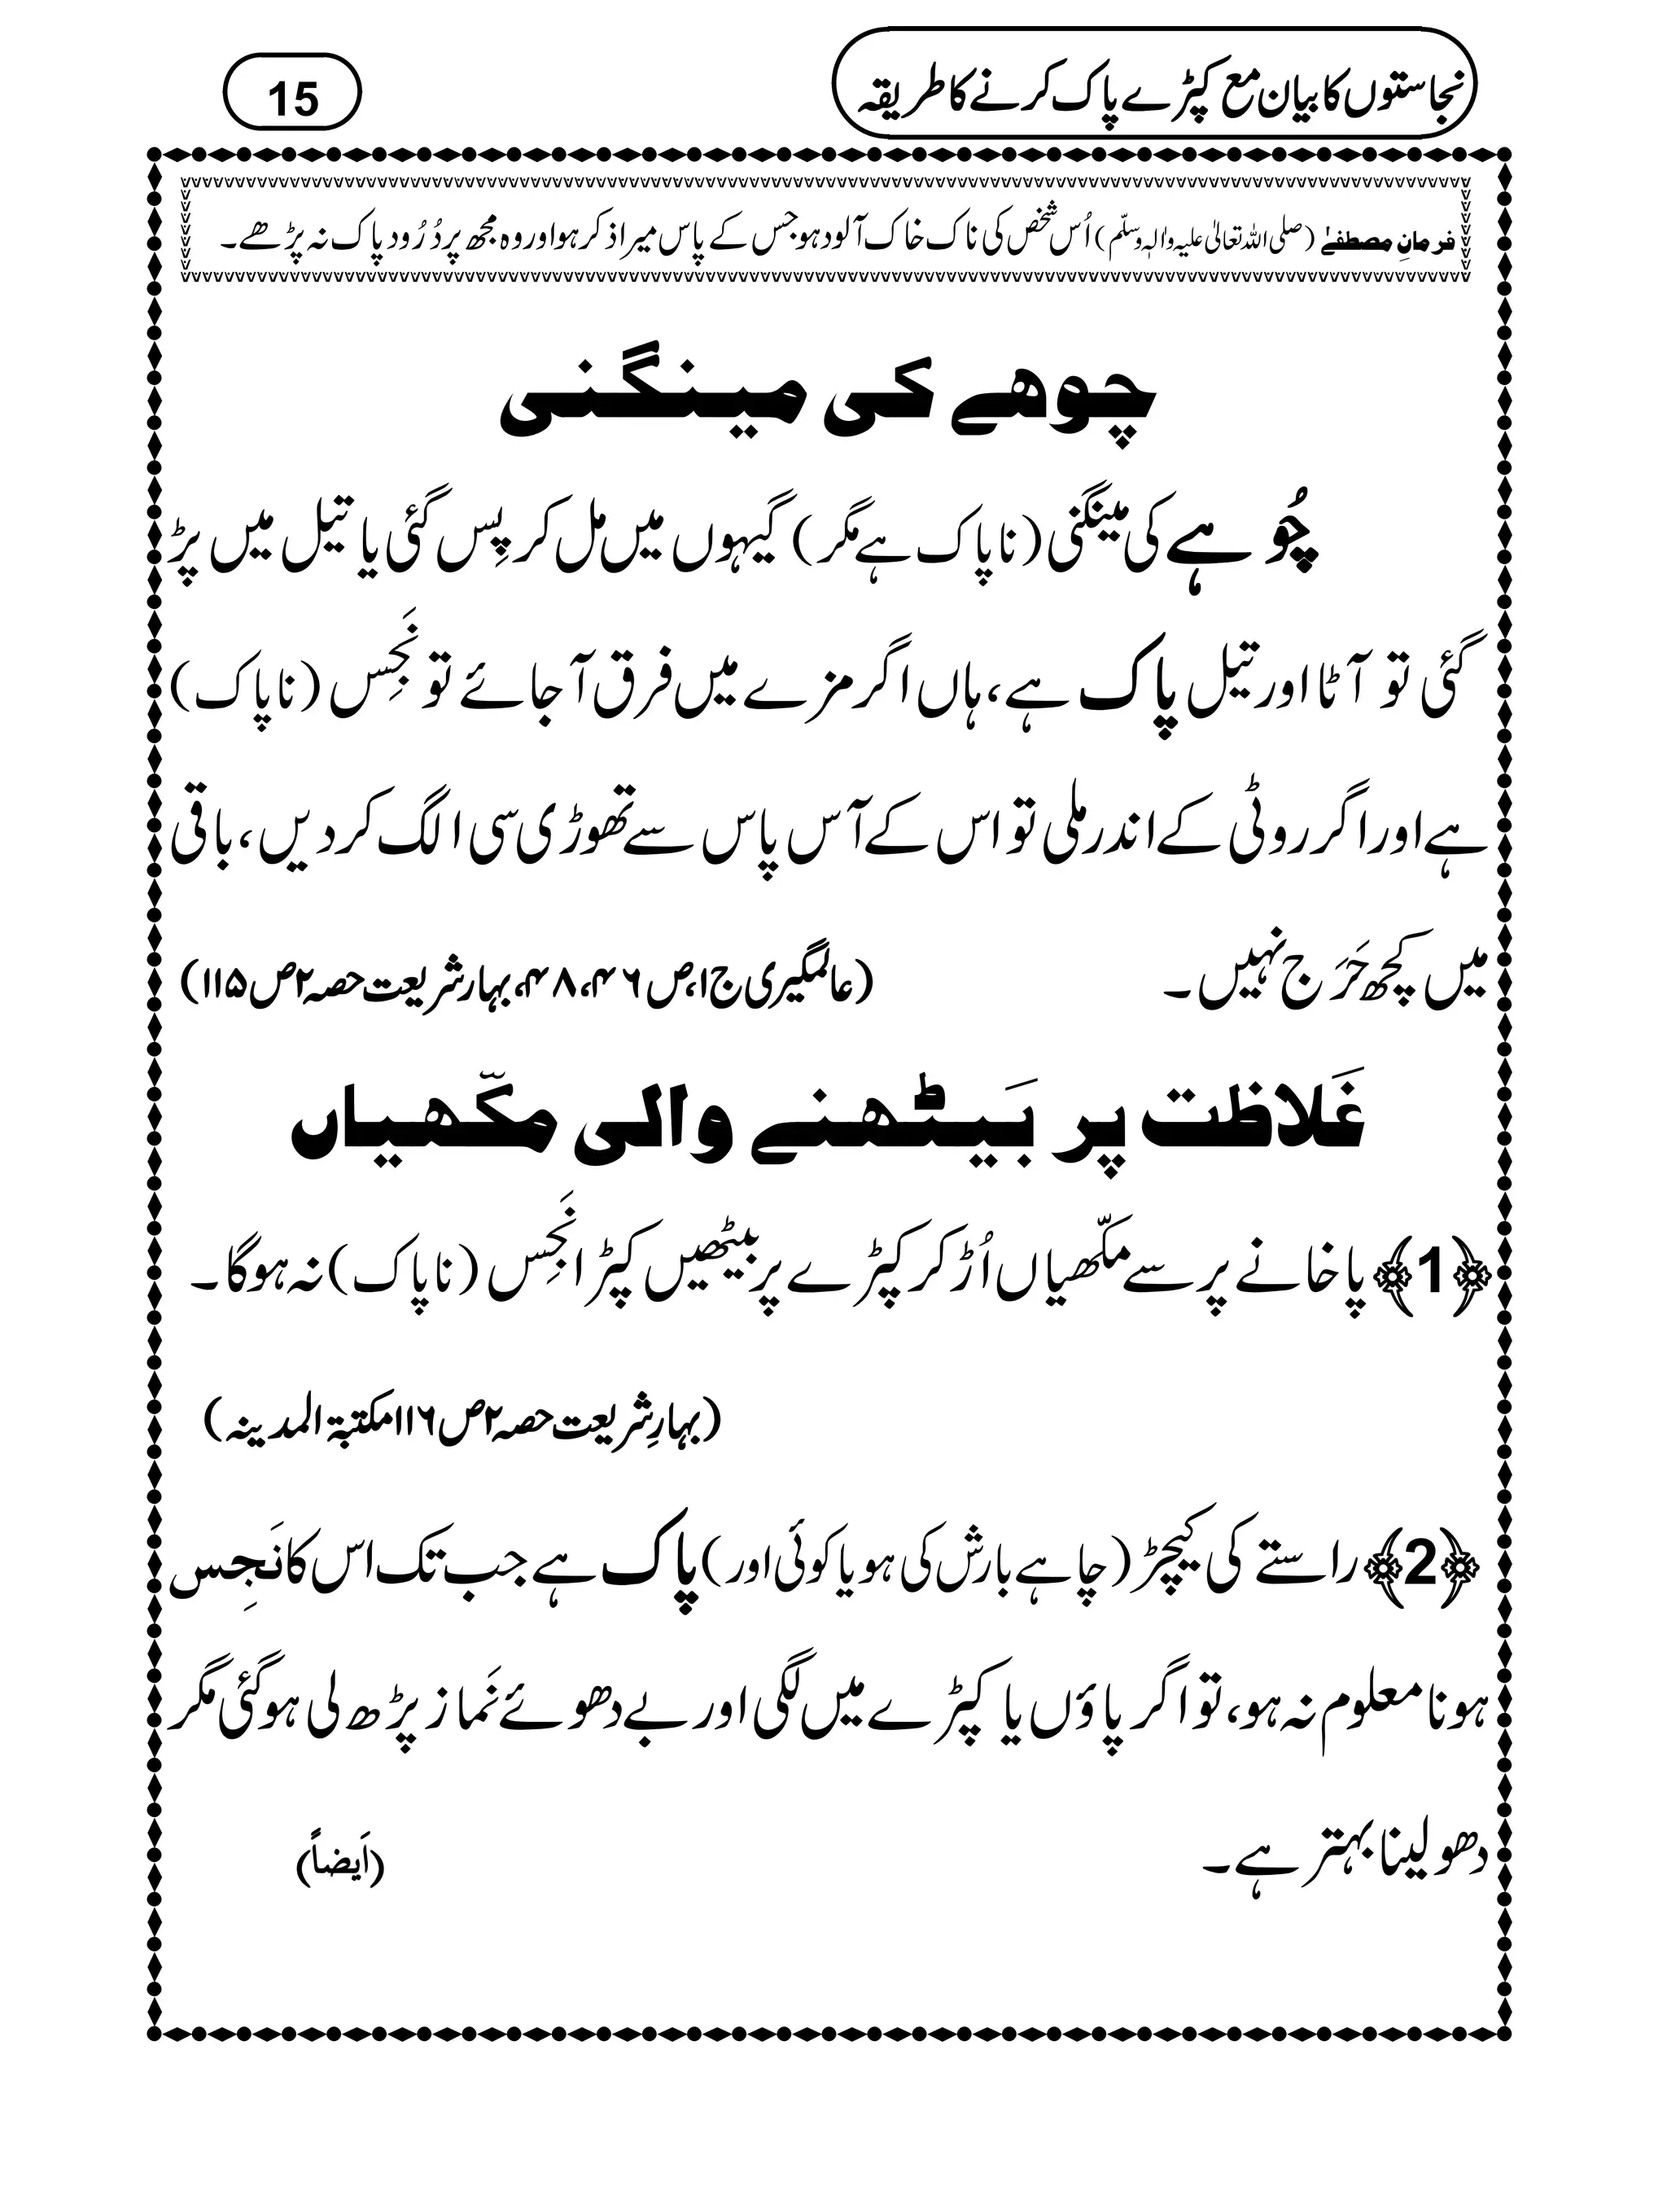 نجاستوں کا بیان مع کپڑے پاک کرنے کا طریقہ
15
فرمانِ مصطفےٰ (صلی اللہ تعالیٰ علیہ واٰلہٖ وسلّم) اُس شخص کی ناک خاک آلود ہو جس کے پاس میرا ذکر ہو اور وہ مجھ پر دُرُود پاک نہ پڑھے۔
چوھے کی مینگنی
چُوہے کی مینگنی (ناپاک ہے مگر) گیہوں میں مل کر پِس گئی یا تیل میں پڑ
گئی تو آٹا اور تیل پاک ہے، ہاں اگر مزے میں فرق آ جائے تو نَجِس (ناپاک)
ہے اور اگر روٹی کے اندر ملی تو اس کے آس پاس سے تھوڑی سی الگ کر دیں، باقی
میں کچھ حَرَج نہیں۔ (عالمگیری ج۱، ص ۴۶، ۴۸، بہار شریعت حصہ ۲ ص ۱۱۵)
غَلاظت پر بَیٹھنے والی مکّھیاں
﴿1﴾ پاخانے پر سے مکّھیاں اُڑ کر کپڑے پر بیٹھیں کپڑا نَجِس (ناپاک) نہ ہوگا۔
(بہارِ شریعت حصہ ۲ ص ۱۱۶ مکتبۃ المدینہ)
﴿2﴾ راستے کی کیچڑ (چاہے بارش کی ہو یا کوئی اور) پاک ہے جب تک اس کا نَجِس
ہونا معلوم نہ ہو، تو اگر پاؤں یا کپڑے میں لگی اور بے دھوئے نَماز پڑھ لی ہوگئی مگر
دھو لینا بہتر ہے۔ (اَیضاً)